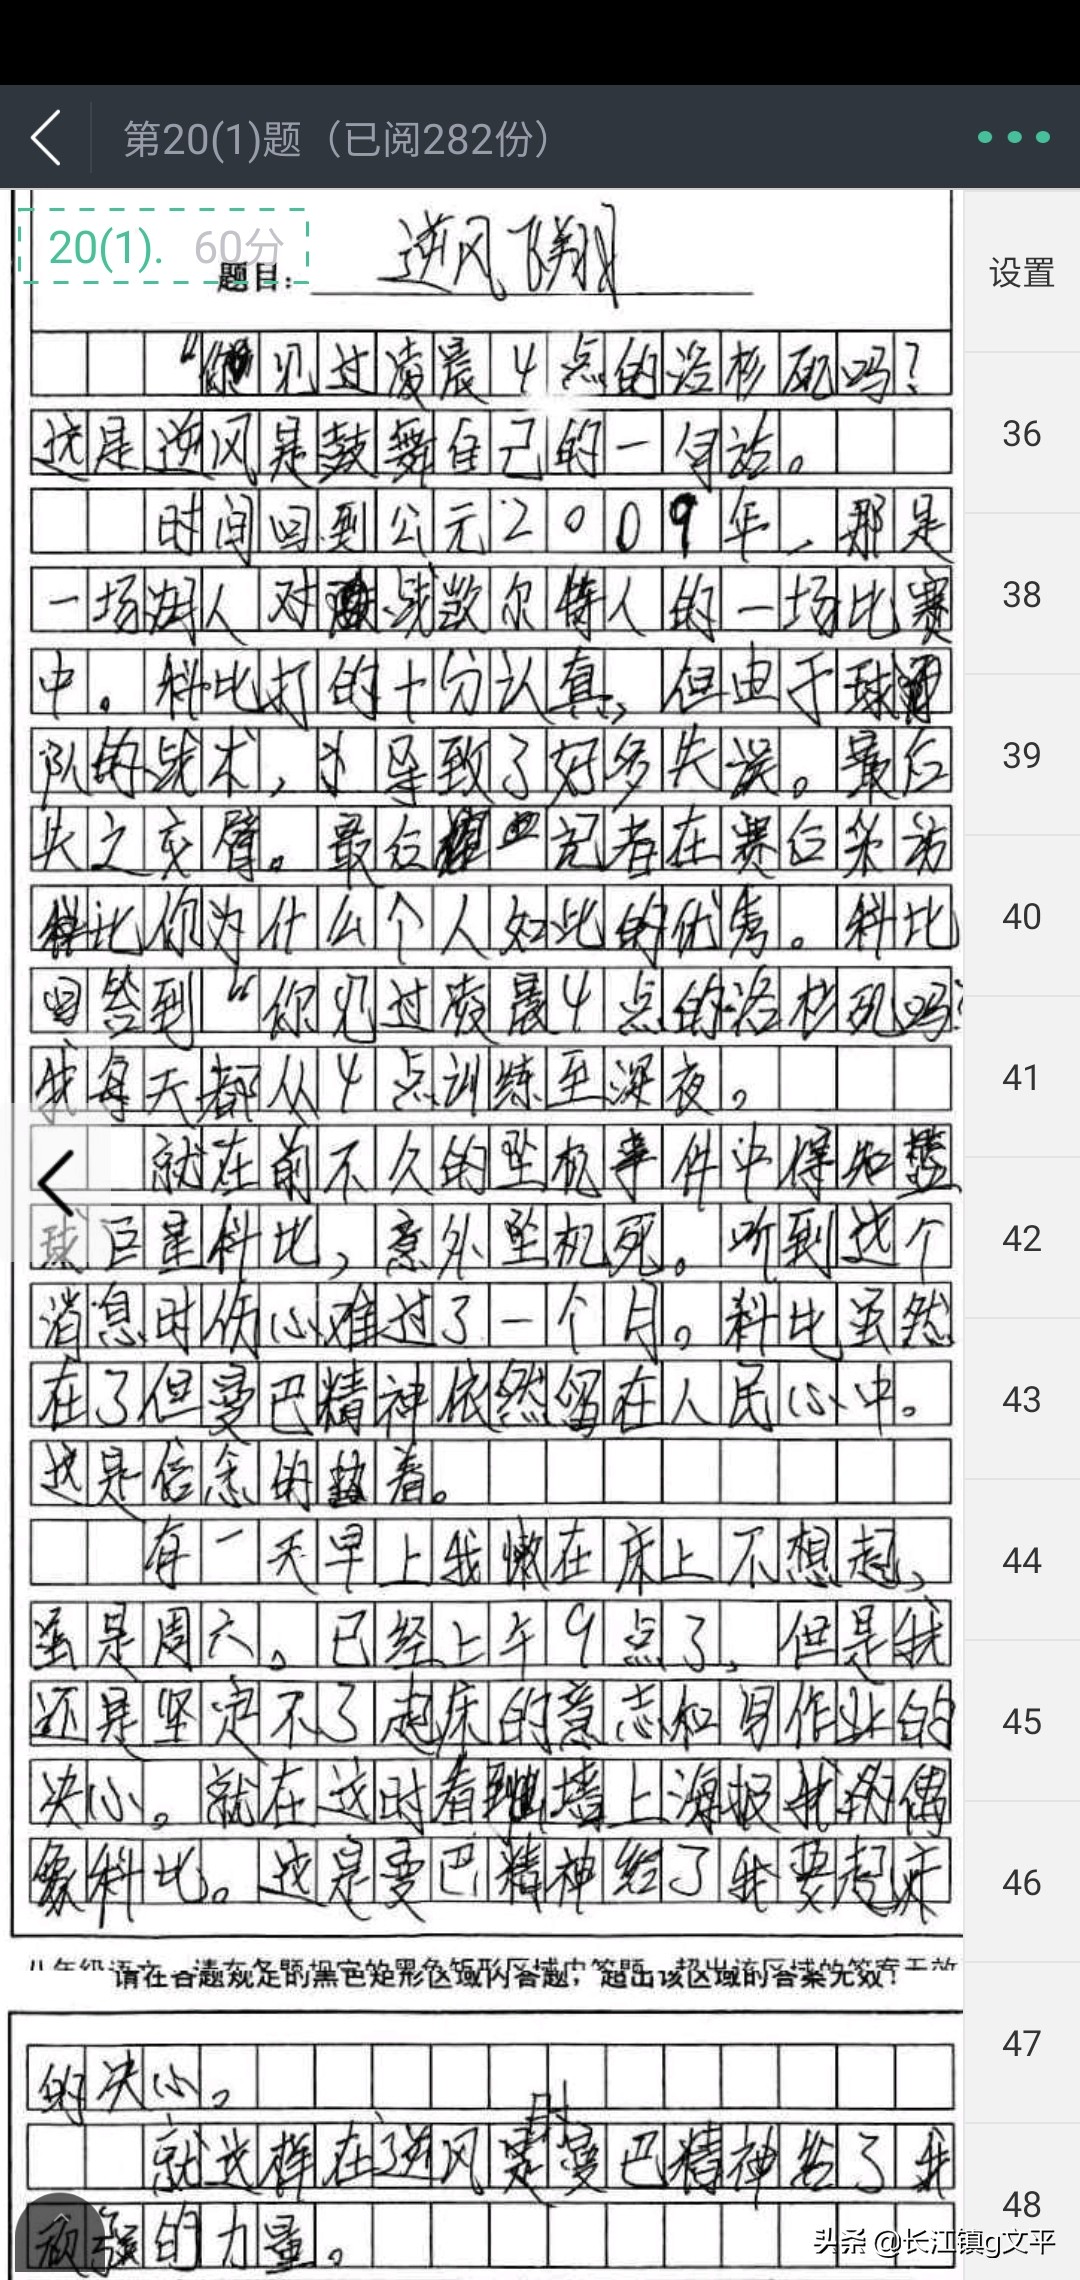 第20(1)题（已阅282份）
20(1). 60分
设置
题目： 逆风飞翔
“你见过凌晨4点的洛杉矶吗？
这是逆风是鼓舞自己的一句话。
时间回到公元2009年，那是
一场湖人对战凯尔特人的一场比赛
中。科比打的十分认真，但由于球
队的战术，才导致了好多失误。最后
失之交臂。最后 记者在赛后采访
科比你为什么个人如此的优秀。科比
回答到“你见过凌晨4点的洛杉矶吗？
我每天都从4点训练至深夜。
就在前不久的坠机事件中得知
球巨星科比，意外坠机死。听到这个
消息时伤心难过了一个月。科比虽然
在了但曼巴精神依然留在人民心中。
这是信念的执着。
有一天早上我懒在床上不想起，
虽是周六。已经上午9点了，但是我
还是坚定不了起床的意志和写作业的
决心。就在这时看到墙上海报我的偶
象科比。这是曼巴精神给了我要起床
请在各题规定的黑色矩形区域内答题，超出该区域的答案无效！
的决心。
就这样在逆风时曼巴精神给了我
顽强的力量。
36
38
39
40
41
42
43
44
45
46
47
48
头条 @长江镇g文平